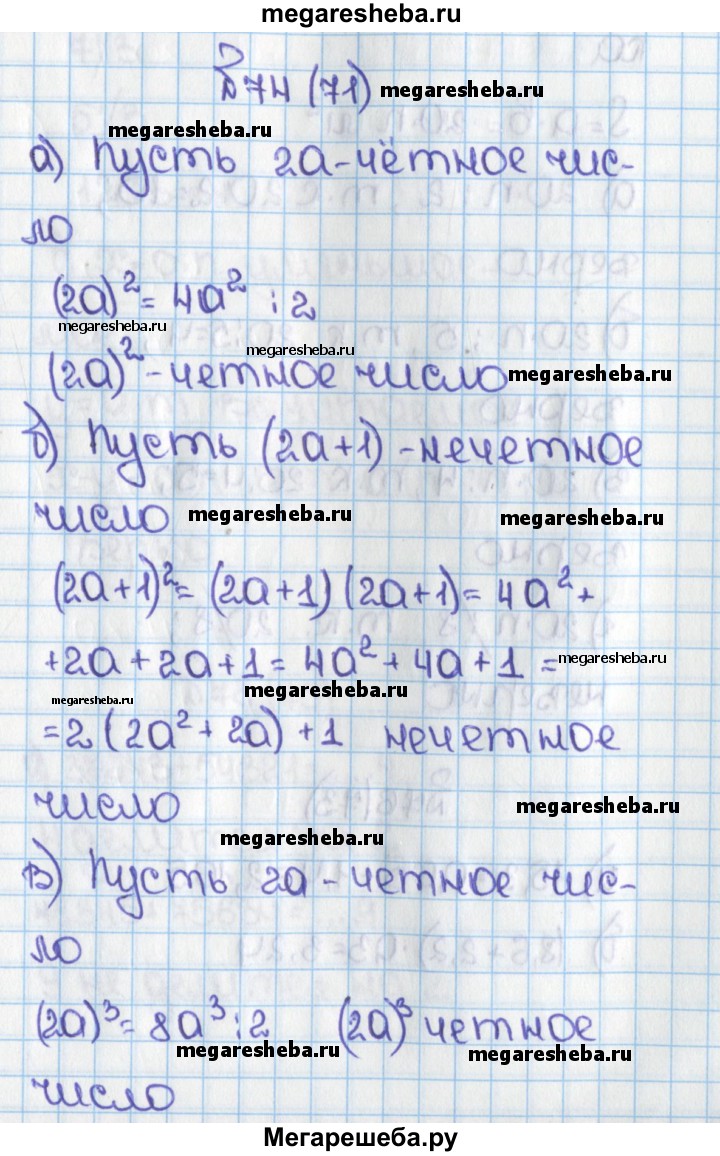 megaresheba.ru
№74 (71) megaresheba.ru
megaresheba.ru
а) Пусть 2а-чётное чис-
ло
(2а)² = 4а² ⋮ 2
megaresheba.ru
megaresheba.ru
(2а)² - четное число megaresheba.ru
б) Пусть (2а+1) - нечетное
число megaresheba.ru megaresheba.ru
(2а+1)² = (2а+1) (2а+1) = 4а² +
+2а+2а+1 = 4а² + 4а + 1 = megaresheba.ru
megaresheba.ru megaresheba.ru
= 2 (2а² + 2а) + 1 нечетное
число megaresheba.ru
megaresheba.ru
в) Пусть 2а - четное чис-
ло
(2а)³ = 8а³ ⋮ 2 (2а)³ четное
megaresheba.ru megaresheba.ru
число
Мегарешеба.ру